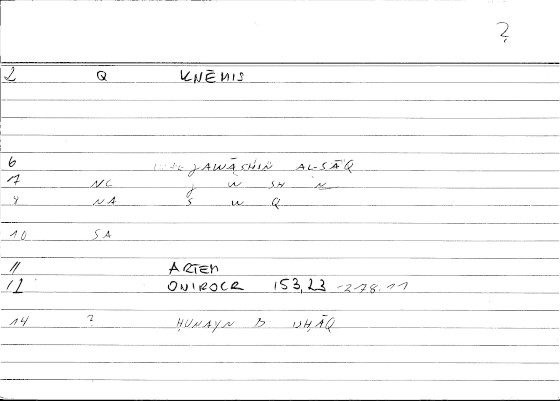 ?
2 Q KNĒMIS
6 JAWĀSHIN AL-SĀQ
7 NC J W SH N
9 NA S W Q
10 SA
11 ARTEM
12 ONIROCR 153,23 -278.11
14 ? ḤUNAYN B ISḤĀQ